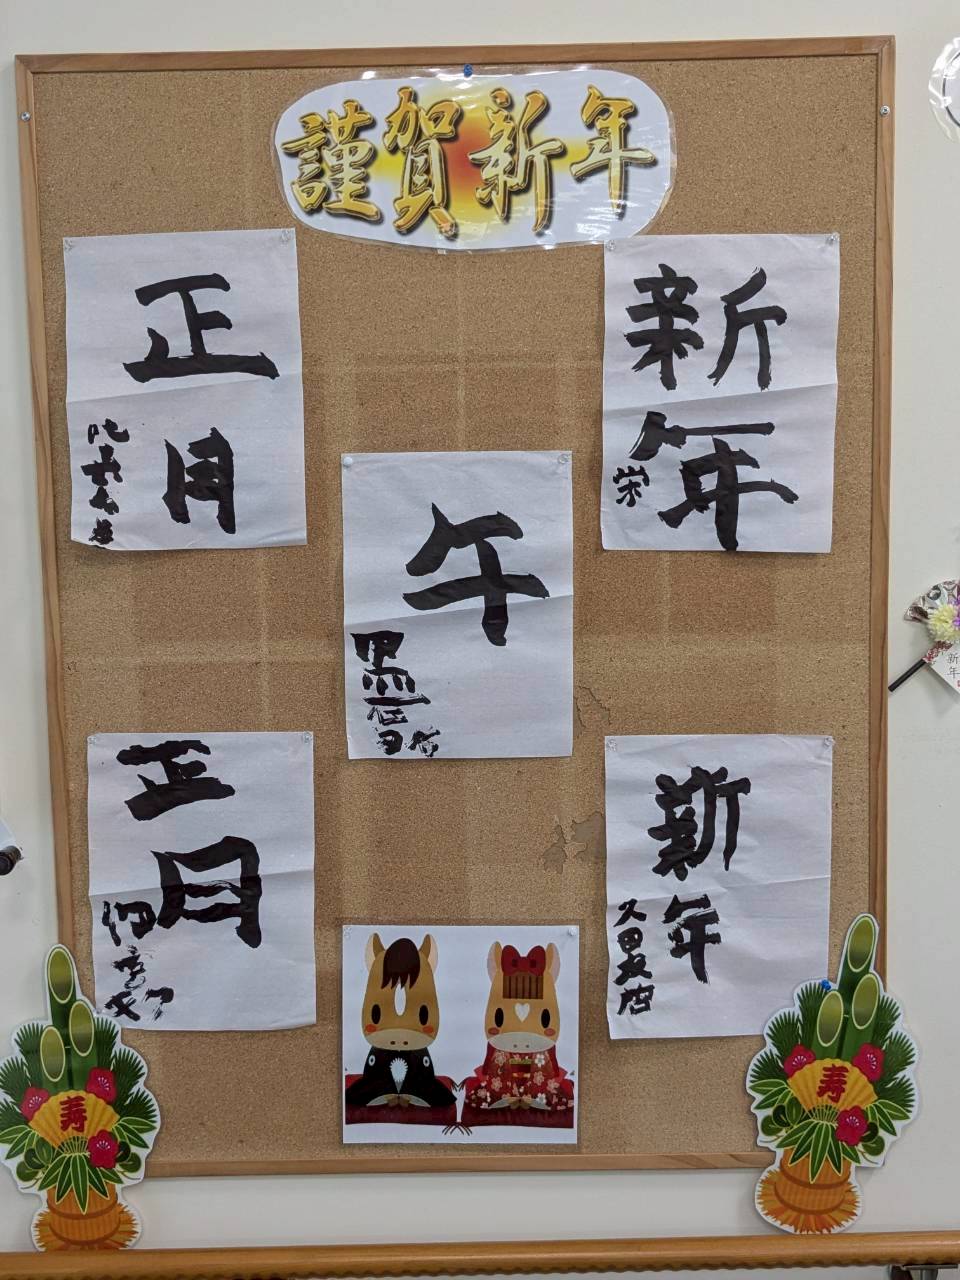 謹賀新年
正月
新年
栄
午
正月
新年
寿
寿
新年